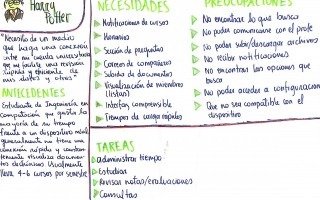 Harry
Potter
"Necesito de un medio
que haga una conexión
entre mi cuenta universitaria
que me facilite una revisión
rápida y eficiente de
mis datos y otros"
ANTECEDENTES
Estudiante de Ingeniería en
computación que gasta la
mayoría de su tiempo
frente a un dispositivo móvil
generalmente no tiene una
conexión rápida y constante
mente visualiza documen
tos electrónicos. Usualmente
lleva 4-6 cursos por semestre
NECESIDADES
Notificaciones de cursos
Horarios
Sección de preguntas
Correos de compañeros
Subida de documentos
Visualización de miembros
(listas)
Interfaz comprensible
Tiempos de carga rápidos
PREOCUPACIONES
No encontrar lo que busca
No poder comunicarse con el profe
No poder subir/descargar archivos
No recibir notificaciones
No encontrar las opciones que
busca
No poder acceder a configuración
Que no sea compatible con el
dispositivo
TAREAS
administrar tiempo
Estudiar
Revisar notas/evaluaciones
Consultas